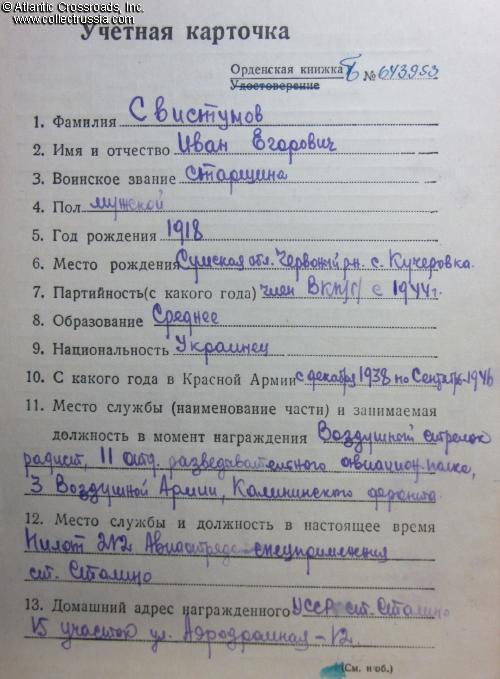 © Atlantic Crossroads, Inc.
www.collectrussia.com
Учетная карточка
Орденская книжка Б № 643953
Удостоверение
1. Фамилия Свистунов
2. Имя и отчество Иван Егорович
3. Воинское звание старшина
4. Пол мужской
5. Год рождения 1918
6. Место рождения Сумская обл. Червоный рн. с. Кучеровка.
7. Партийность(с какого года) член ВКП/б/ с 1944г.
8. Образование Среднее
9. Национальность Украинец
10. С какого года в Красной Армии с декабря 1938 по Сентябрь-1946
11. Место службы (наименование части) и занимаемая
должность в момент награждения Воздушный стрелок
радист, 11 отд. разведывательного авиацион. полка,
3 Воздушной Армии, Калининского фронта.
12. Место службы и должность в настоящее время
Пилот 212 Авиаотряда спецприменения
ст. Сталино
13. Домашний адрес награжденного УССР, ст. Сталино
15 участок ул. Аэродромная-12.
(См. н об.)